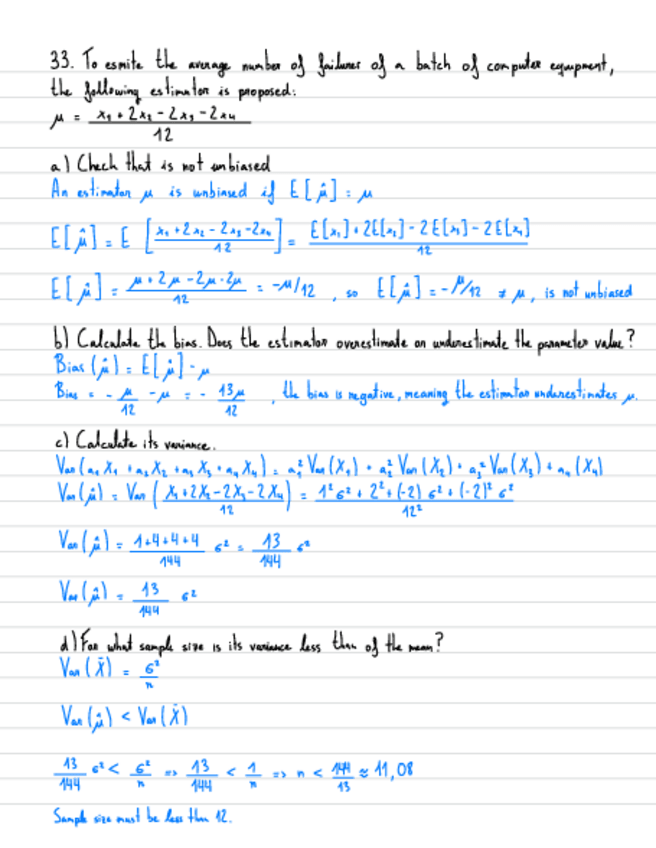 33. To esmite the average number of failures of a batch of computer equipment,
the following estimator is proposed:
μ = (x₁ + 2x₂ - 2x₃ - 2x₄) / 12
a) Check that is not unbiased
An estimator μ is unbiased if E[μ̂] = μ
E[μ̂] = E [(x₁ + 2x₂ - 2x₃ - 2x₄) / 12] = (E[x₁] + 2E[x₂] - 2E[x₃] - 2E[x₄]) / 12
E[μ̂] = (μ + 2μ - 2μ - 2μ) / 12 = -μ/12, so E[μ̂] = -μ/12 ≠ μ, is not unbiased
b) Calculate the bias. Does the estimator overestimate or underestimate the parameter value?
Bias(μ̂) = E[μ̂] - μ
Bias = - μ/12 - μ = - 13μ/12, the bias is negative, meaning the estimator underestimates μ.
c) Calculate its variance.
Var(a₁X₁ + a₂X₂ + a₃X₃ + a₄X₄) = a₁² Var(X₁) + a₂² Var(X₂) + a₃² Var(X₃) + a₄(X₄)
Var(μ̂) = Var((X₁ + 2X₂ - 2X₃ - 2X₄) / 12) = (1²б² + 2² + (-2) б² + (-2)² б²) / 12²
Var(μ̂) = (1+4+4+4)/144 б² = 13/144 б²
Var(μ̂) = 13/144 б²
d) For what sample size is its variance less than of the mean?
Var(X̄) = б²/n
Var(μ̂) < Var(X̄)
13/144 б² < б²/n => 13/144 < 1/n => n < 144/13 ≈ 11,08
Sample size must be less than 12.